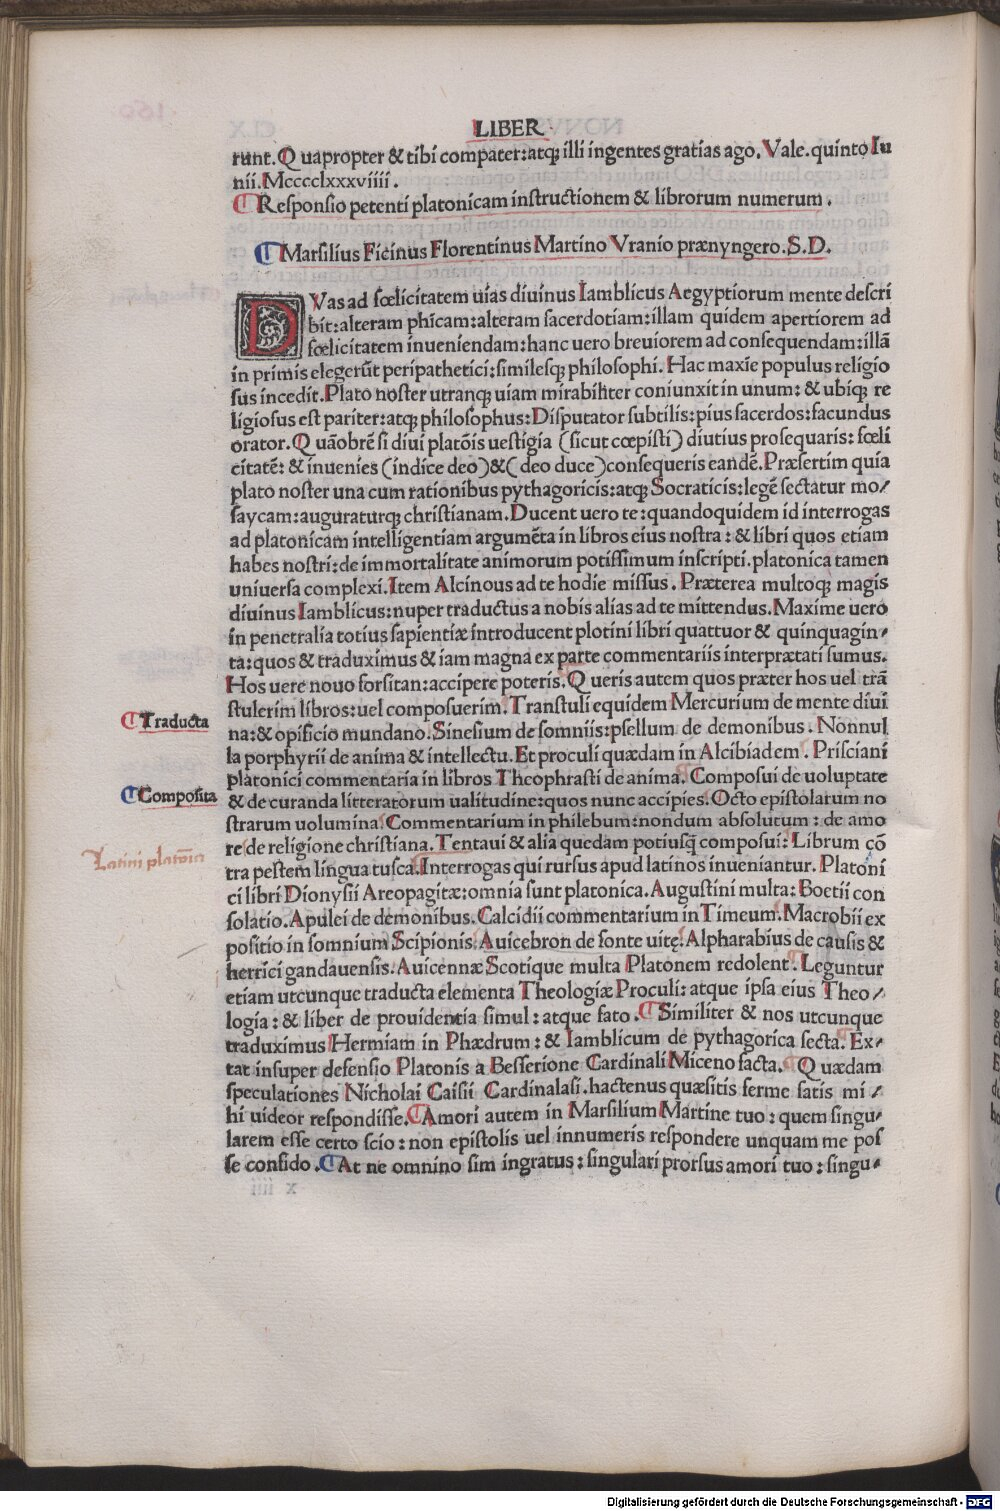 LIBER
runt. Q uapropter & tibi compater: atq; illi ingentes gratias ago. Vale. quinto Iu
nii. Mcccclxxxviiii.
Responsio petenti platonicam instructionem & librorum numerum.
Marsilius Ficinus Florentinus Martino Vranio prænyngero. S. D.
DVas ad fœlicitatem uias diuinus Iamblicus Aegyptiorum mente descri
bit: alteram phicam: alteram sacerdotiam: illam quidem apertiorem ad
fœlicitatem inueniendam: hanc uero breuiorem ad consequendam: illã
in primis elegerũt peripathetici: similesq; philosophi. Hac maxie populus religio
sus incedit. Plato noster utranq; uiam mirabiliter coniunxit in unum: & ubiq; re
ligiosus est pariter: atq; philosophus: Disputator subtilis: pius sacerdos: facundus
orator. Q uãobrẽ si diui platõis uestigia (sicut cœpisti) diutius prosequaris: fœli
citatẽ: & inuenies (indice deo) & (deo duce) consequeris eandẽ. Præsertim quia
plato noster una cum rationibus pythagoricis: atq; Socraticis: legẽ sectatur mo/
saycam: auguraturq; christianam. Ducent uero te: quandoquidem id interrogas
ad platonicam intelligentiam argumẽta in libros eius nostra: & libri quos etiam
habes nostri: de immortalitate animorum potissimum inscripti. platonica tamen
uniuersa complexi. Item Alcinous ad te hodie missus. Præterea multoq; magis
diuinus Iamblicus: nuper traductus a nobis alias ad te mittendus. Maxime uero
in penetralia totius sapientiæ introducent plotini libri quattuor & quinquagin/
ta: quos & traduximus & iam magna ex parte commentariis interprætati sumus.
Hos uere nouo forsitan: accipere poteris. Q ueris autem quos præter hos uel trã
stulerim libros: uel composuerim. Transtuli equidem Mercurium de mente diui
na: & opificio mundano. Sinesium de somniis: psellum de demonibus. Nonnul
la porphyrii de anima & intellectu. Et proculi quædam in Alcibiadem. Prisciani
platonici commentaria in libros Theophrasti de anima. Composui de uoluptate
& de curanda litteratorum ualitudine: quos nunc accipies. Octo epistolarum no
strarum uolumina. Commentarium in philebum: nondum absolutum: de amo
re de religione christiana. Tentaui & alia quedam potiusq̃ composui: Librum cõ
tra pestem lingua tusca. Interrogas qui rursus apud latinos inueniantur. Platoni
ci libri Dionysii Areopagitæ: omnia sunt platonica. Augustini multa: Boetii con
solatio. Apulei de demonibus. Calcidii commentarium in Timeum. Macrobii ex
positio in somnium Scipionis. Auicebron de fonte uitę. Alpharabius de causis &
herrici gandauensis. Auicennæ Scotique multa Platonem redolent. Leguntur
etiam utcunque traducta elementa Theologiæ Proculi: atque ipsa eius Theo/
logia: & liber de prouidentia simul: atque fato. Similiter & nos utcunque
traduximus Hermiam in Phædrum: & Iamblicum de pythagorica secta. Ex/
tat insuper defensio Platonis a Besserione Cardinali Miceno facta. Q uædam
speculationes Nicholai Caisii Cardinalasi. hactenus quæsitis ferme satis mi/
hi uideor respondisse. Amori autem in Marsilium Martine tuo: quem singu/
larem esse certo scio: non epistolis uel innumeris respondere unquam me pos
se confido. At ne omnino sim ingratus: singulari prorsus amori tuo: singu/
Traducta
Composita
Latini platõici
Digitalisierung gefördert durch die Deutsche Forschungsgemeinschaft - DFG